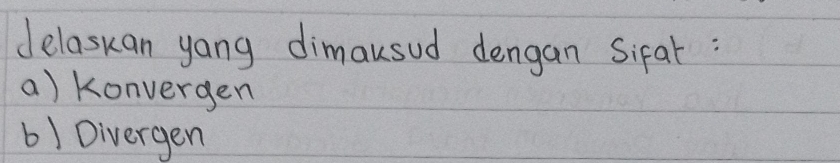 Jelaskan yang dimaksud dengan Sifat :
a) Konvergen
b) Divergen